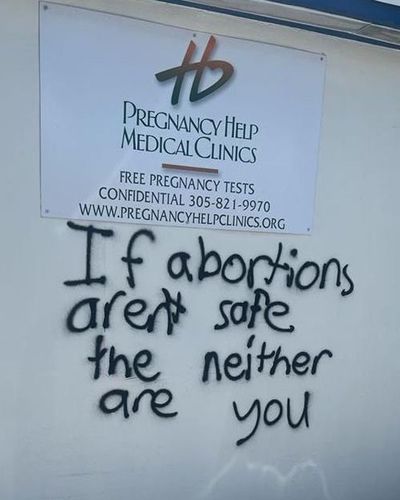 hb
PREGNANCY HELP
MEDICAL CLINICS
FREE PREGNANCY TESTS
CONFIDENTIAL 305-821-9970
WWW.PREGNANCYHELPCLINICS.ORG
If abortions
aren't safe
the neither
are you